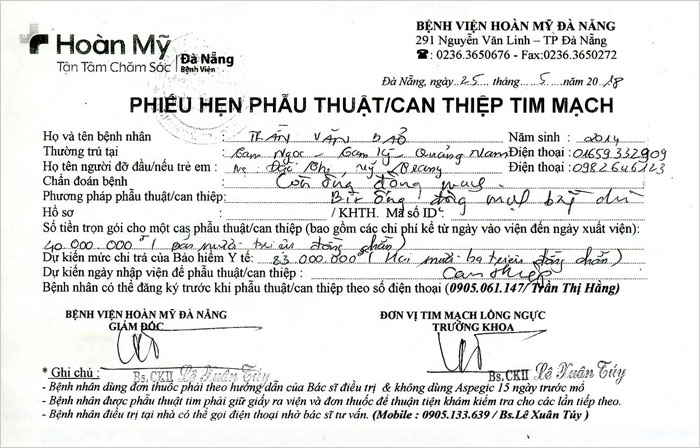 Hoàn Mỹ
Đà Nẵng
Bệnh Viện
Tận Tâm Chăm Sóc
BỆNH VIỆN HOÀN MỸ ĐÀ NẴNG
291 Nguyễn Văn Linh – TP Đà Nẵng
☎: 0236.3650676 - Fax:0236.3650272
Đà Nẵng, ngày..25....tháng....5....năm 2018
PHIẾU HẸN PHẪU THUẬT/CAN THIỆP TIM MẠCH
Họ và tên bệnh nhân : TRẦN VĂN BẢO Năm sinh : 2014
Thường trú tại : Tam Ngọc - Tam Kỳ - Quảng Nam Điện thoại :01659332909
Họ tên người đỡ đầu/nếu trẻ em : Mẹ Điện thoại: 0982646123
Chẩn đoán bệnh : Còn ống động mạch
Phương pháp phẫu thuật/can thiệp: Bít ống động mạch bằng dù
Hồ sơ : / KHTH. Mã số ID :
Số tiền trọn gói cho một cas phẫu thuật/can thiệp (bao gồm các chi phí kể từ ngày vào viện đến ngày xuất viện):
40.000.000 đ ( Bốn mươi triệu đồng chẵn)
Dự kiến mức chi trả của Bảo hiểm Y tế: 23.000.000 đ ( Hai mươi ba triệu đồng chẵn)
Dự kiến ngày nhập viện để phẫu thuật/can thiệp : Can thiệp
Bệnh nhân có thể đăng ký trước khi phẫu thuật/can thiệp theo số điện thoại (0905.061.147/ Trần Thị Hằng)
BỆNH VIỆN HOÀN MỸ ĐÀ NẴNG
GIÁM ĐỐC
ĐƠN VỊ TIM MẠCH LỒNG NGỰC
TRƯỞNG KHOA
* Ghi chú : Bs.CKII Lê Xuân Túy
Bs.CKII Lê Xuân Túy
- Bệnh nhân dùng đơn thuốc phải theo hướng dẫn của Bác sĩ điều trị & không dùng Aspegic 15 ngày trước mổ
- Bệnh nhân được phẫu thuật tim phải giữ giấy ra viện và đơn thuốc để thuận tiện khám kiểm tra cho các lần tiếp theo.
- Bệnh nhân điều trị tại nhà có thể gọi điện thoại nhờ bác sĩ tư vấn. (Mobile : 0905.133.639 / Bs.Lê Xuân Túy )